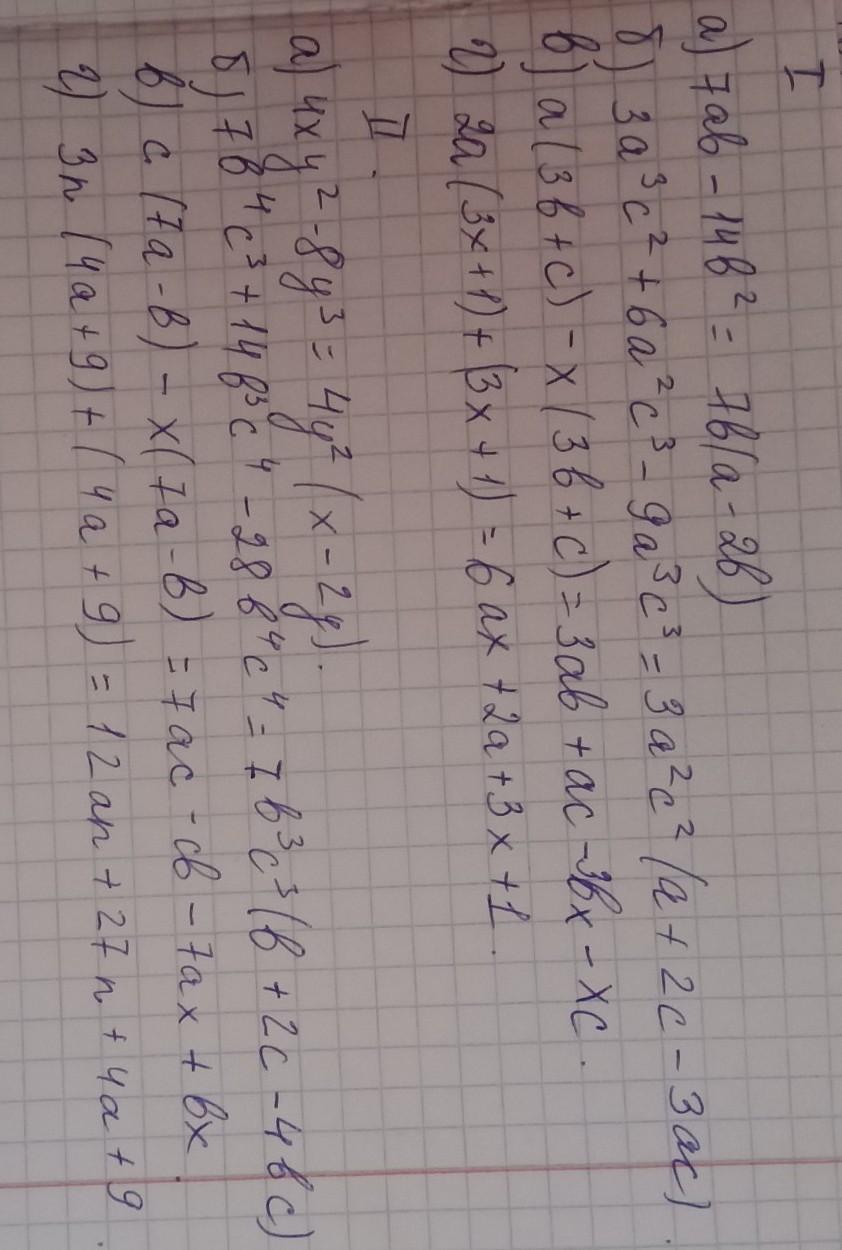 I
а) 7ab - 14b² = 7b(a - 2b)
б) 3a³c² + 6a²c³ - 9a³c³ = 3a²c² (a + 2c - 3ac)
в) a (3b + c) - x (3b + c) = 3ab + ac - 3bx - xc.
г) 2a (3x + 1) + (3x + 1) = 6ax + 2a + 3x + 1.
II.
а) 4xy² - 8y³ = 4y² (x - 2y).
б) 7b⁴c³ + 14b³c⁴ - 28b⁴c⁴ = 7b³c³ (b + 2c - 4bc)
в) c (7a - b) - x (7a - b) = 7ac - cb - 7ax + bx.
г) 3n (4a + 9) + (4a + 9) = 12an + 27n + 4a + 9.